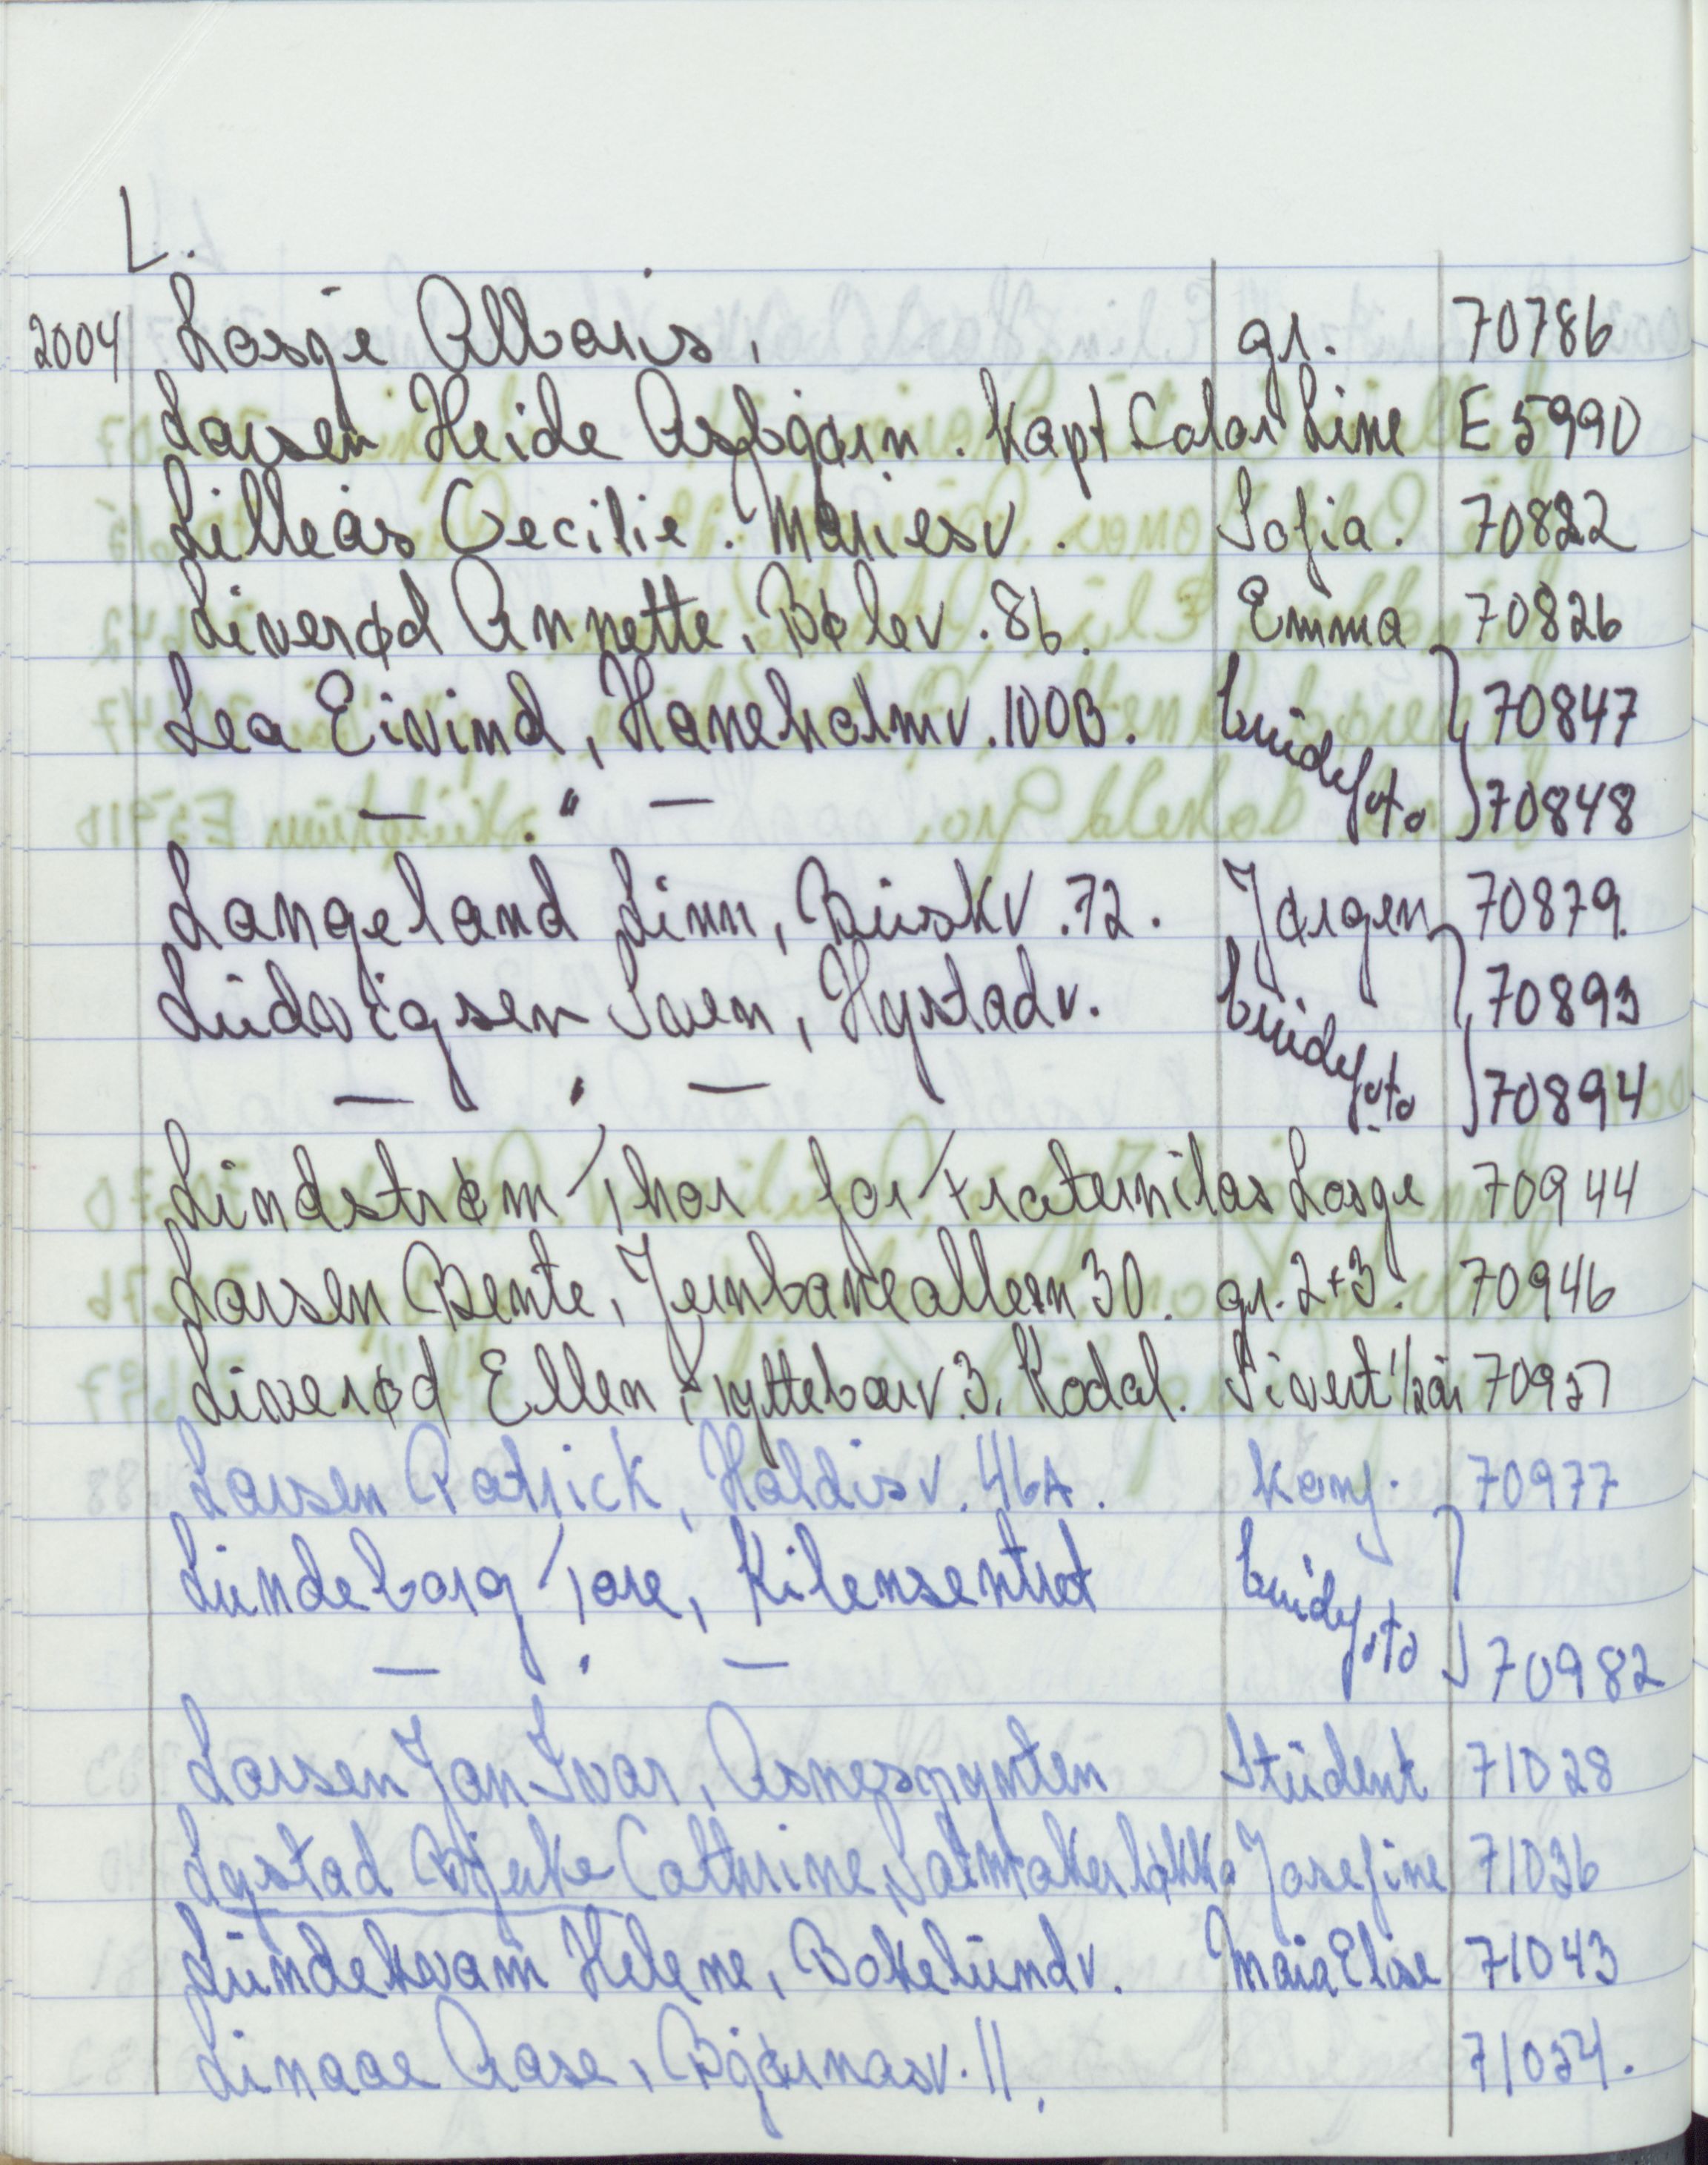 L.
2004 Losje Albaris. gr. 70786
Larsen Heide Asbjørn. Kapt Color Line E 5990
Lilleås Cecilie. Mariesv. Sofia. 70822
Liverød Annette, Bølev. 86. Emma 70826
Lea Eivind, Haneholmv. 100B. brudefoto 70847
— " — 70848
Langeland Linn, Buskv. 72. Jørgen 70879.
Ludvigsen Sven, Hystadv. brudefoto 70893
— " — 70894
Lindstrøm Thor for Fraternitas Losje 70944
Larsen Bente, Jernbanealleen 30. gr. 2+3. 70946
Liverød Ellen, Tyttebærv. 3, Kodal. Sivert 1/2 år 70957
Larsen Patrick, Haldisv. 46A. Konf. 70977
Lundeborg Tore, Kilensentret brudefoto
— " — 70982
Larsen Jan Ivar, Asnespynten Student 71028
Lystad Bjerke Cathrine, Salmakerløkka Josefine 71036
Lundekvam Helene, Bokelundv. Maia Elise 71043
Linaae Aase, Bjørnasv. 11. 71054.